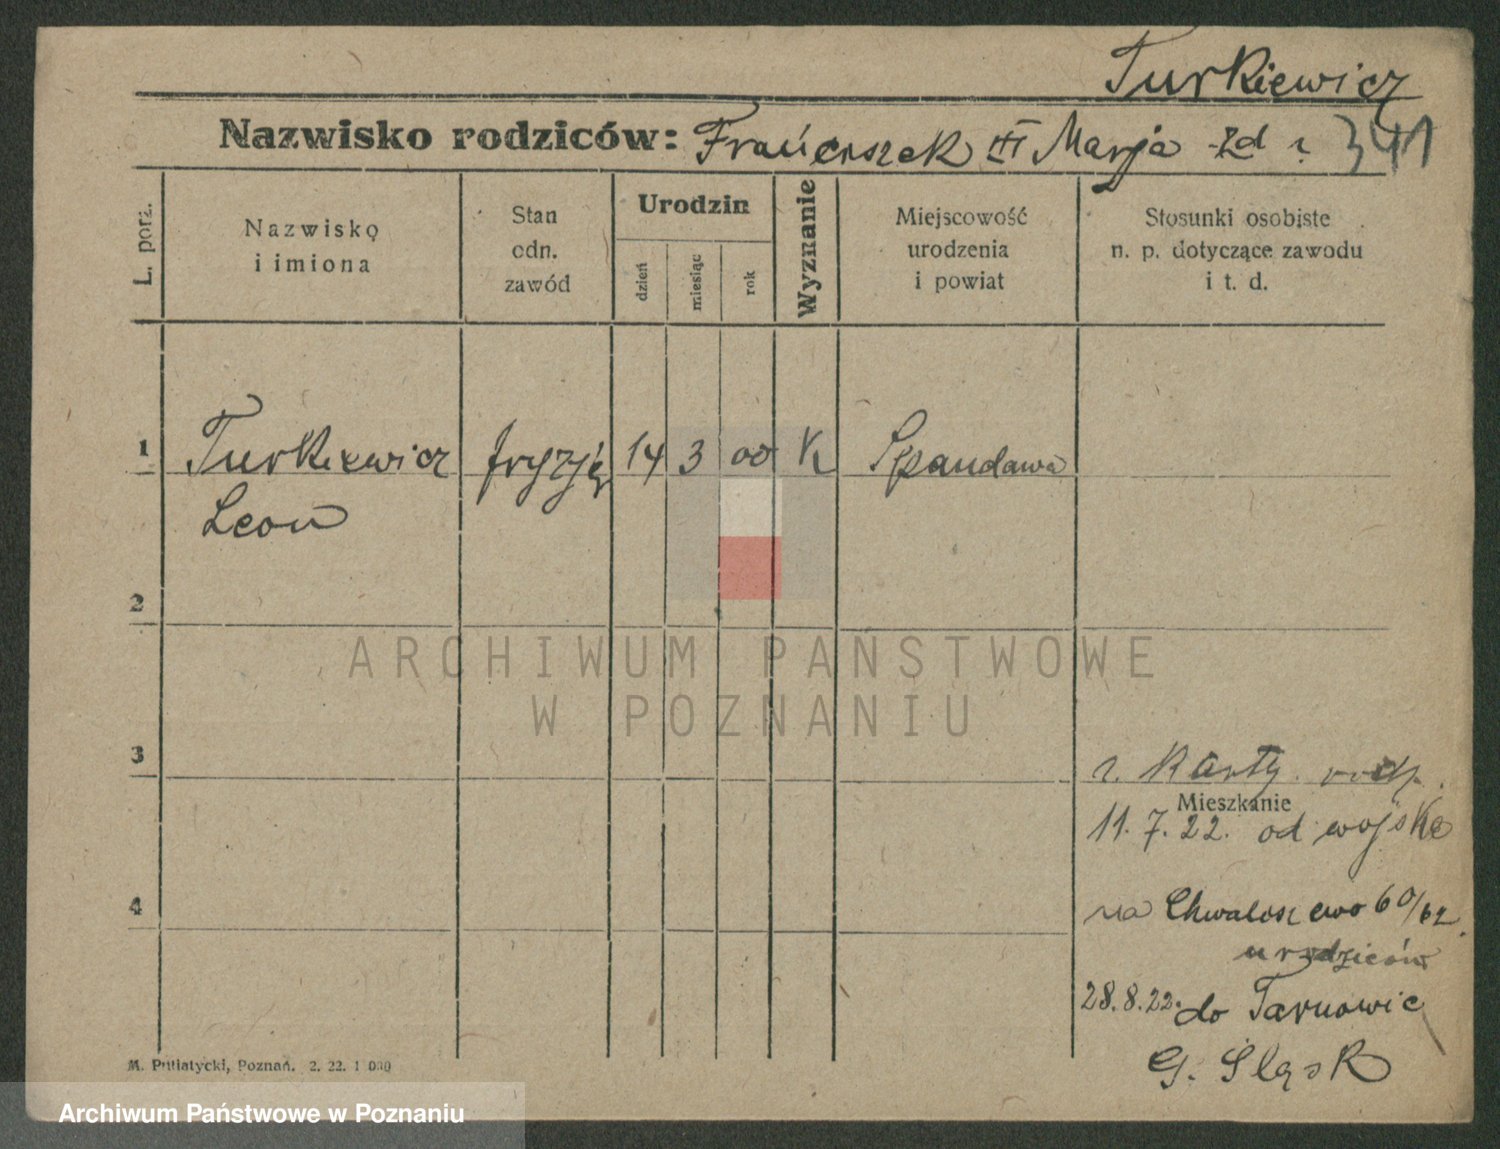 Turkiewicz
Nazwisko rodziców: Franciszek Marja 341
L. porz.
Nazwisko
i imiona
Stan
cdn.
zawód
Urodzin
dzień
miesiąc
rok
Wyznanie
Miejscowość
urodzenia
i powiat
Stosunki osobiste
n. p. dotyczące zawodu
i t. d.
1 Turkiewicz fryzj 14 3 00 K Spandawa
Leon
2
3
z. Karty
Mieszkanie
11. 7. 22. od wojska
4
na Chwaliszewo 60/62.
u rodziców
28.8.22. do Tarnowic
G. Śląsk
M. Putiatycki, Poznań. 2. 22. 1 000
ARCHIWUM PAŃSTWOWE
W POZNANIU
Archiwum Państwowe w Poznaniu